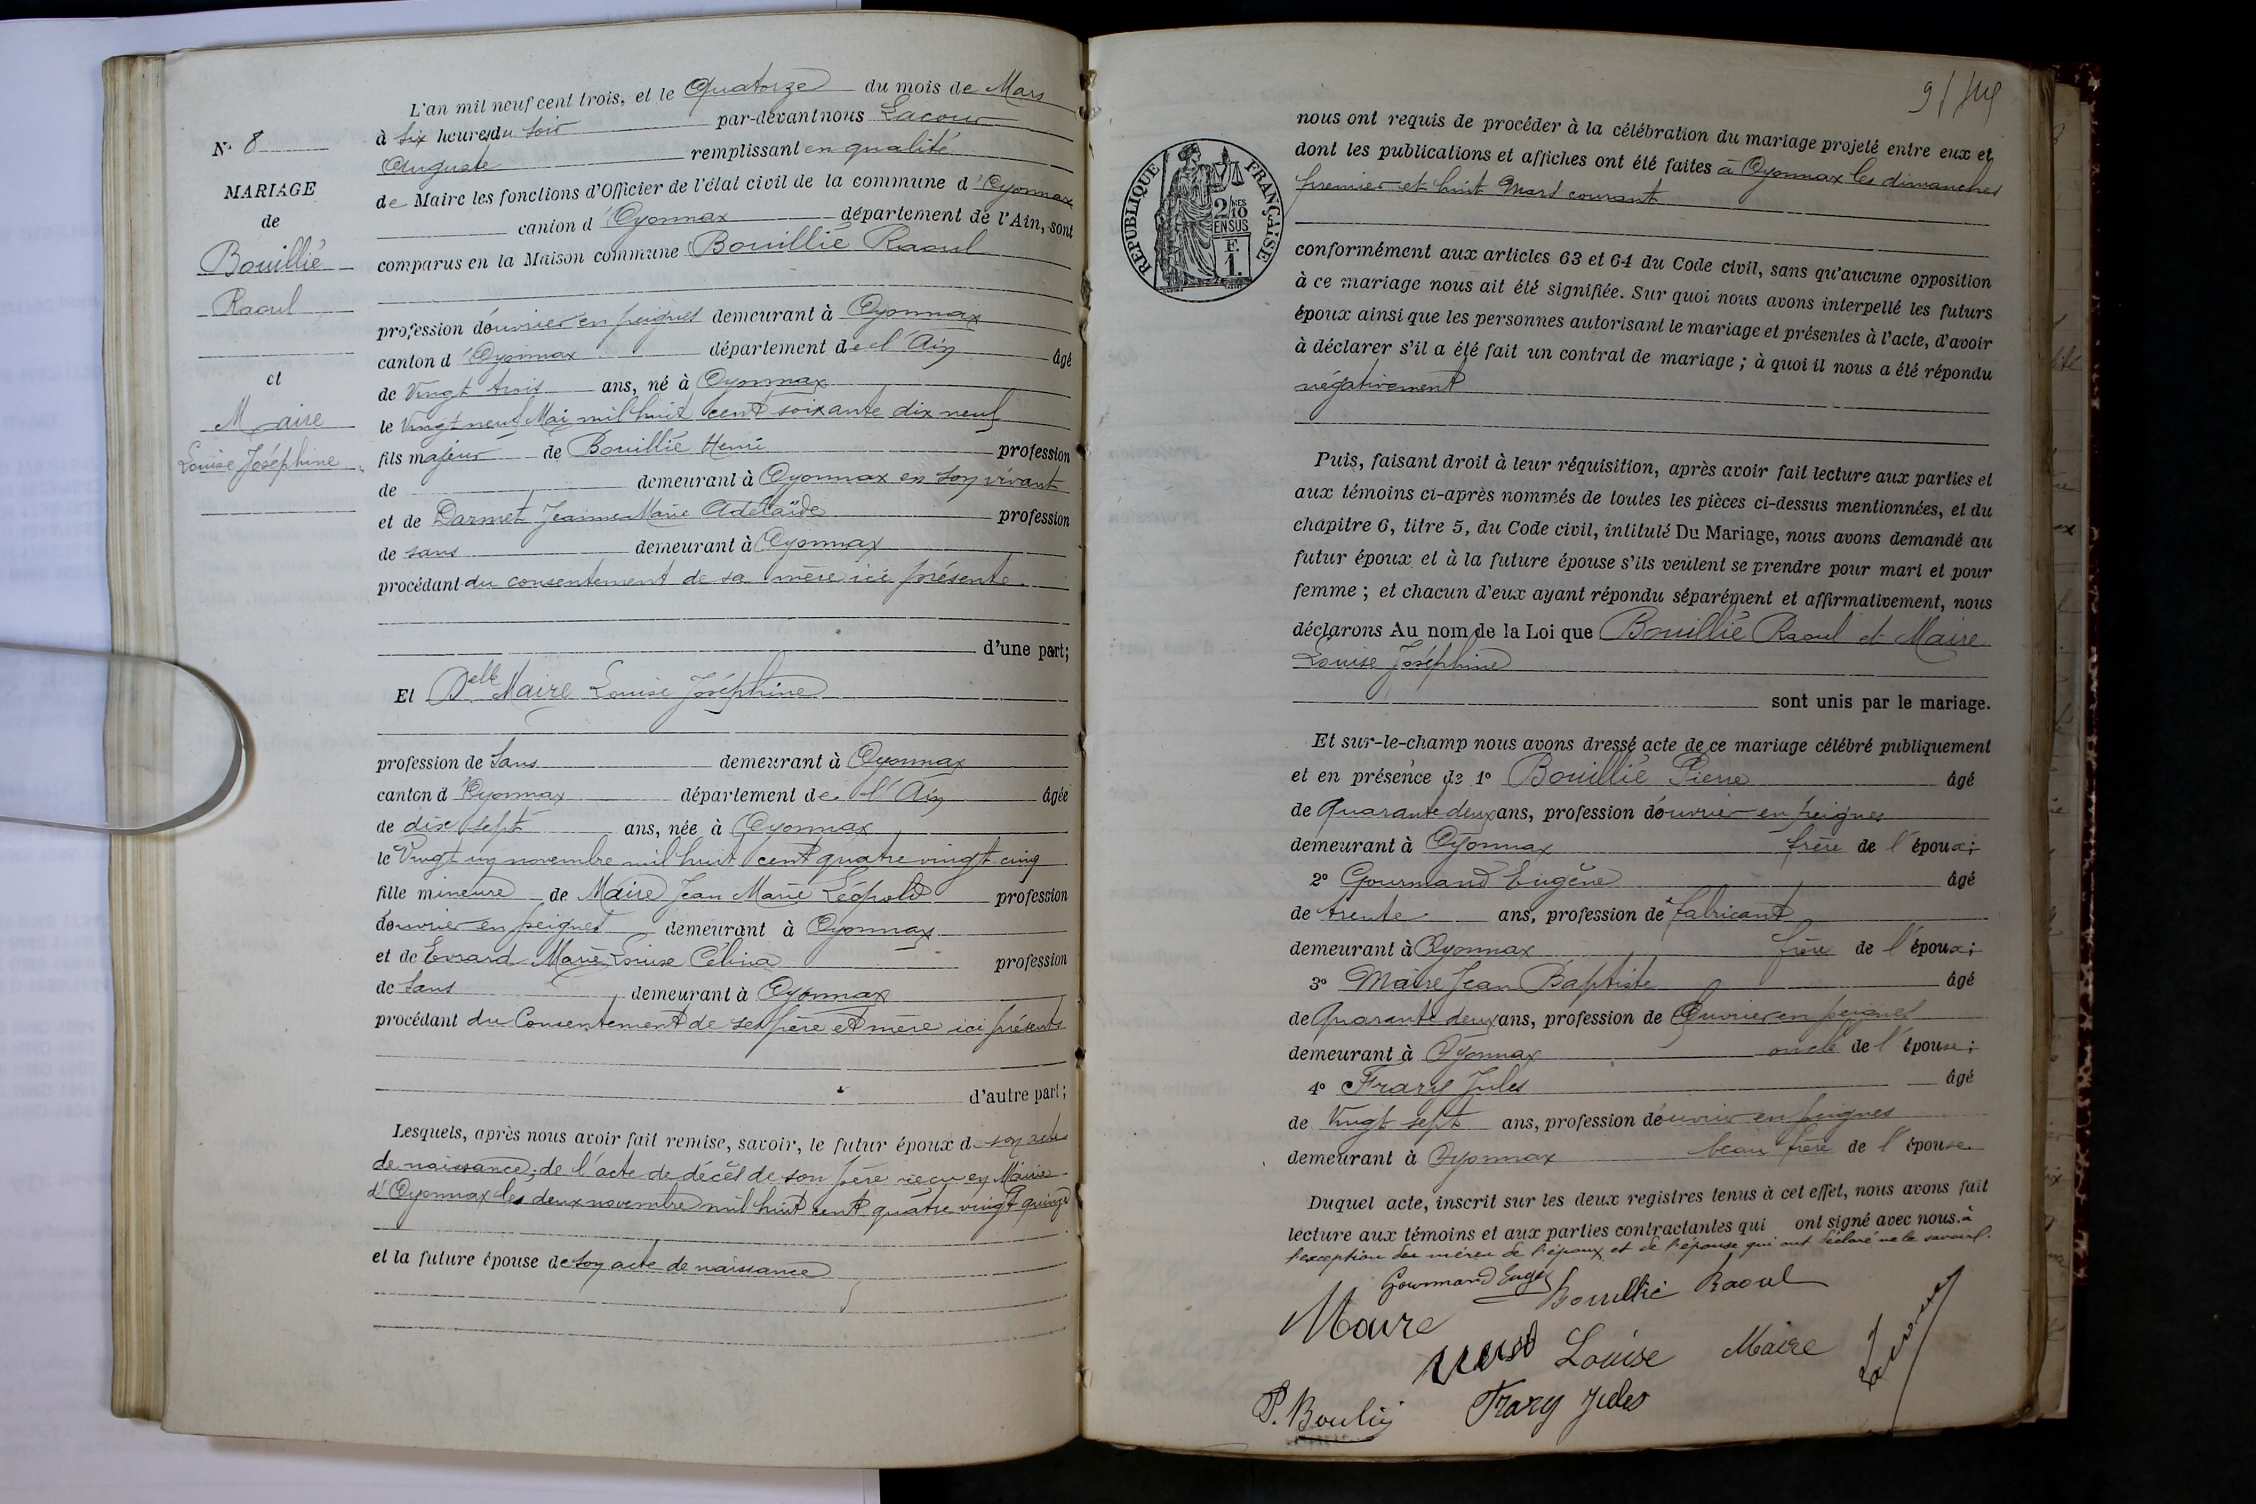 N° 8
MARIAGE
de
Bouillié
Raoul
et
Maire
Louise Joséphine
L'an mil neuf cent trois, et le Quatorze du mois de Mars
à six heures du soir par-devant nous Lacour
Auguste remplissant en qualité
de Maire les fonctions d'Officier de l'état civil de la commune d'Oyonnax
canton d'Oyonnax département de l'Ain, sont
comparus en la Maison commune Bouillié Raoul
profession d'ouvrier en peignes demeurant à Oyonnax
canton d'Oyonnax département de l'Ain âgé
de Vingt trois ans, né à Oyonnax
le Vingt neuf Mai mil huit cent soixante dix neuf
fils majeur de Bouillié Henri profession
de demeurant à Oyonnax en son vivant
et de Darmet Jeanne Marie Adélaïde profession
de sans demeurant à Oyonnax
procédant du consentement de sa mère ici présente
d'une part;
Et Delle Maire Louise Joséphine
profession de Sans demeurant à Oyonnax
canton d'Oyonnax département de l'Ain âgée
de dix sept ans, née à Oyonnax
le Vingt un novembre mil huit cent quatre vingt cinq
fille mineure de Maire Jean Marie Léopold profession
d'ouvrier en peignes demeurant à Oyonnax
et de Evrard Marie Louise Célina profession
de Sans demeurant à Oyonnax
procédant du Consentement de ses père et mère ici présents
d'autre part;
Lesquels, après nous avoir fait remise, savoir, le futur époux de son acte
de naissance; de l'acte de décès de son père reçu en Mairie
d'Oyonnax le deux novembre mil huit cent quatre vingt quinze
et la future épouse de son acte de naissance
91
RÉPUBLIQUE FRANÇAISE
2/10 EN SUS
F.
1.
nous ont requis de procéder à la célébration du mariage projeté entre eux et
dont les publications et affiches ont été faites à Oyonnax les dimanches
premier et huit Mars courant
conformément aux articles 63 et 64 du Code civil, sans qu'aucune opposition
à ce mariage nous ait été signifiée. Sur quoi nous avons interpellé les futurs
époux ainsi que les personnes autorisant le mariage et présentes à l'acte, d'avoir
à déclarer s'il a été fait un contrat de mariage; à quoi il nous a été répondu
négativement
Puis, faisant droit à leur réquisition, après avoir fait lecture aux parties et
aux témoins ci-après nommés de toutes les pièces ci-dessus mentionnées, et du
chapitre 6, titre 5, du Code civil, intitulé Du Mariage, nous avons demandé au
futur époux et à la future épouse s'ils veulent se prendre pour mari et pour
femme; et chacun d'eux ayant répondu séparément et affirmativement, nous
déclarons Au nom de la Loi que Bouillié Raoul et Maire
Louise Joséphine
sont unis par le mariage.
Et sur-le-champ nous avons dressé acte de ce mariage célébré publiquement
et en présence de 1° Bouillié Pierre âgé
de Quarante deux ans, profession d'ouvrier en peignes
demeurant à Oyonnax frère de l'époux;
2° Gourmand Eugène âgé
de trente ans, profession de fabricant
demeurant à Oyonnax frère de l'époux;
3° Maire Jean Baptiste âgé
de Quarante deux ans, profession de Ouvrier en peignes
demeurant à Oyonnax oncle de l'épouse;
4° Frary Jules âgé
de Vingt sept ans, profession d'ouvrier en peignes
demeurant à Oyonnax beau frère de l'épouse.
Duquel acte, inscrit sur les deux registres tenus à cet effet, nous avons fait
lecture aux témoins et aux parties contractantes qui ont signé avec nous. à
l'exception des mères de l'époux et de l'épouse qui ont déclaré ne le savoir.
Gourmand Eug Bouillié Raoul
Maire
Louise Maire
P. Boulié Frary Jules